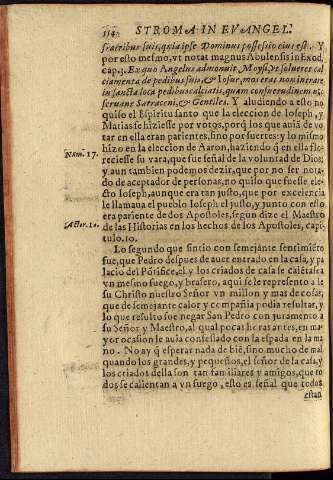 114 STROMA IN EVANGEL.
fratribus suis, quia ipse Dominus possessio eius est. Y
por esto mesmo, vt notat magnus Abulensis in Exod.
cap. 3. Ex quo Angelus admonuit Moysẽ, vt solueret cal
ciamenta de pedibus suis, & Iosue, mos erat non intrare
in sancta loca pedibus calciatis, quam consuetudinem ob
seruant Sarraceni, & Gentiles. Y aludiendo a esto no
quiso el Espiritu santo que la eleccion de Ioseph, y
Marias se hiziesse por votos, porq̃ los que auiã de vo
tar en ella eran parientes, sino por suertes: y lo mismo
hizo en la eleccion de Aaron, haziendo q̃ en ella flo-
Num. 17.
reciesse su vara, que fue señal de la voluntad de Dios;
y aun tambien podemos dezir, que por no ser nota-
do de aceptador de personas, no quiso que fuesse ele-
cto Ioseph, aunque era tan justo, que por excelencia
le llamaua el pueblo Ioseph el justo, y junto con esto
era pariente de dos Apostoles, segun dize el Maestro
Actor. 10.
de las Historias en los hechos de los Apostoles, capi-
tulo. 10.
Lo segundo que sintio con semejante sentimiẽto
fue, que Pedro despues de auer entrado en la casa, y pa
lacio del Põtifice, el y los criados de casa se calẽtassẽ a
vn mesmo fuego, y brasero, aqui se le represento a le
su Christo nuestro Señor vn millon y mas de cosas,
que de semejante calor y cõpañia podia resultar, y
lo que resulto fue negar San Pedro con juramento a
su Señor y Maestro, al qual pocas horas antes, en ma
yor ocasion le auia confessado con la espada en la ma
no. No ay q̃ esperar nada de biẽ, sino mucho de mal
quando los grandes, y pequeños, el señor de la casa, y
los criados della son tan familiares y amigos, que to
dos se calientan a vn fuego, esto es señal que todos
estan